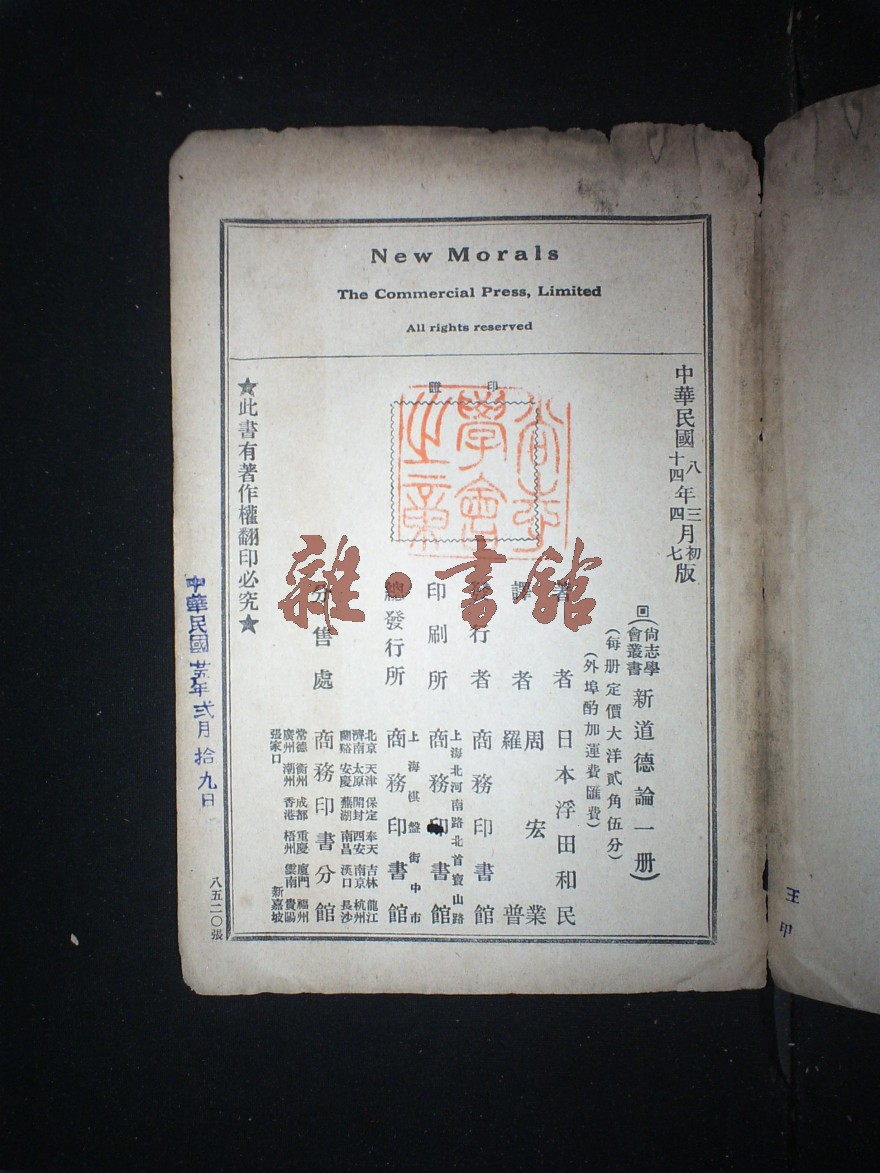 New Morals
The Commercial Press, Limited
All rights reserved
中華民國八年三月初版
十四 四 七
回(尙志學會叢書新道德論一册)
(每册定價大洋貳角伍分)
(外埠酌加運費匯費)
著者 日本浮田和民
譯者 周宏業
羅普
發行者 商務印書館
上海北河南路北首寶山路
印刷所 商務印書館
上海棋盤街中市
總發行所 商務印書館
北京 天津 保定 奉天 吉林 龍江
濟南 太原 開封 西安 南京 杭州
蘭谿 安慶 蕪湖 南昌 漢口 長沙
分售處 商務印書分館
常德 衡州 成都 重慶 廈門 福州
廣州 潮州 香港 梧州 雲南 貴陽
張家口 新嘉坡
印證
尙志學會之章
★此書有著作權翻印必究★
中華民國 年弍月拾九日
八五二〇張
雜·書館
王印